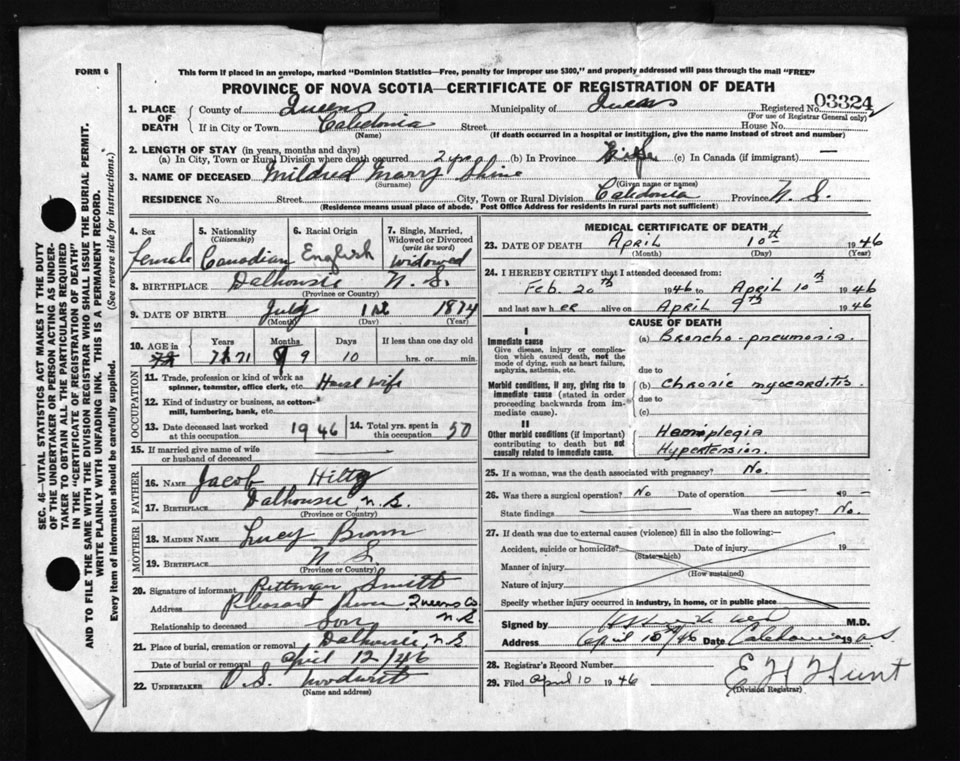 FORM 6
This form if placed in an envelope, marked "Dominion Statistics—Free, penalty for improper use $300," and properly addressed will pass through the mail "FREE"
PROVINCE OF NOVA SCOTIA—CERTIFICATE OF REGISTRATION OF DEATH
SEC. 46—VITAL STATISTICS ACT MAKES IT THE DUTY
OF THE UNDERTAKER OR PERSON ACTING AS UNDER-
TAKER TO OBTAIN ALL THE PARTICULARS REQUIRED
IN THE "CERTIFICATE OF REGISTRATION OF DEATH"
AND TO FILE THE SAME WITH THE DIVISION REGISTRAR WHO SHALL ISSUE THE BURIAL PERMIT.
WRITE PLAINLY WITH UNFADING INK. THIS IS A PERMANENT RECORD.
Every item of information should be carefully supplied. (See reverse side for instructions.)
1. PLACE OF DEATH
County of Queens Municipality of Queens Registered No. 03324
(For use of Registrar General only)
If in City or Town Caledonia Street House No.
(Name) (If death occurred in a hospital or institution, give the name instead of street and number)
2. LENGTH OF STAY (in years, months and days)
(a) In City, Town or Rural Division where death occurred 2 yrs (b) In Province Life (c) In Canada (if immigrant) —
3. NAME OF DECEASED Mildred Mary
(Surname) (Given name or names)
RESIDENCE No. Street City, Town or Rural Division Caledonia Province N. S.
(Residence means usual place of abode. Post Office Address for residents in rural parts not sufficient)
4. Sex
female
5. Nationality
(Citizenship)
Canadian
6. Racial Origin
English
7. Single, Married,
Widowed or Divorced
(write the word)
widowed
8. BIRTHPLACE Dalhousie N. S.
(Province or Country)
9. DATE OF BIRTH July 1st 1874
(Month) (Day) (Year)
10. AGE in
Years Months Days If less than one day old
71 9 10 hrs. or min.
OCCUPATION
11. Trade, profession or kind of work as
spinner, teamster, office clerk, etc. House wife
12. Kind of industry or business, as cotton-
mill, lumbering, bank, etc.
13. Date deceased last worked
at this occupation 1946
14. Total yrs. spent in
this occupation 50
15. If married give name of wife
or husband of deceased
FATHER
16. NAME Jacob Hiltz
17. BIRTHPLACE Dalhousie N.S.
(Province or Country)
MOTHER
18. MAIDEN NAME Lucy Brown
19. BIRTHPLACE N. S.
(Province or Country)
20. Signature of informant Smith
Address Pleasant River Queens Co
N.S.
Relationship to deceased Son
21. Place of burial, cremation or removal Dalhousie, N.S
Date of burial or removal April 12/46
22. UNDERTAKER
(Name and address)
MEDICAL CERTIFICATE OF DEATH
23. DATE OF DEATH April 10th 1946
(Month) (Day) (Year)
24. I HEREBY CERTIFY that I attended deceased from:
Feb. 20th 1946 to April 10th 1946
and last saw her alive on April 9th 1946
CAUSE OF DEATH
I
Immediate cause
Give disease, injury or complica-
tion which caused death, not the
mode of dying, such as heart failure,
asphyxia, asthenia, etc.
(a) Broncho-pneumonia.
due to
Morbid conditions, if any, giving rise to
immediate cause (stated in order
proceeding backwards from im-
mediate cause).
(b) Chronic myocarditis.
due to
(c)
II
Other morbid conditions (if important)
contributing to death but not
causally related to immediate cause.
Hemiplegia
Hypertension.
25. If a woman, was the death associated with pregnancy? No.
26. Was there a surgical operation? No Date of operation — 19 —
State findings Was there an autopsy? No.
27. If death was due to external causes (violence) fill in also the following:
Accident, suicide or homicide? Date of injury 19
(State which)
Manner of injury
(How sustained)
Nature of injury
Specify whether injury occurred in industry, in home, or in public place
Signed by M.D.
Address April 10th/46 Date Caledonia 19 N.S.
28. Registrar's Record Number
29. Filed April 10 1946 E H Hunt
(Division Registrar)